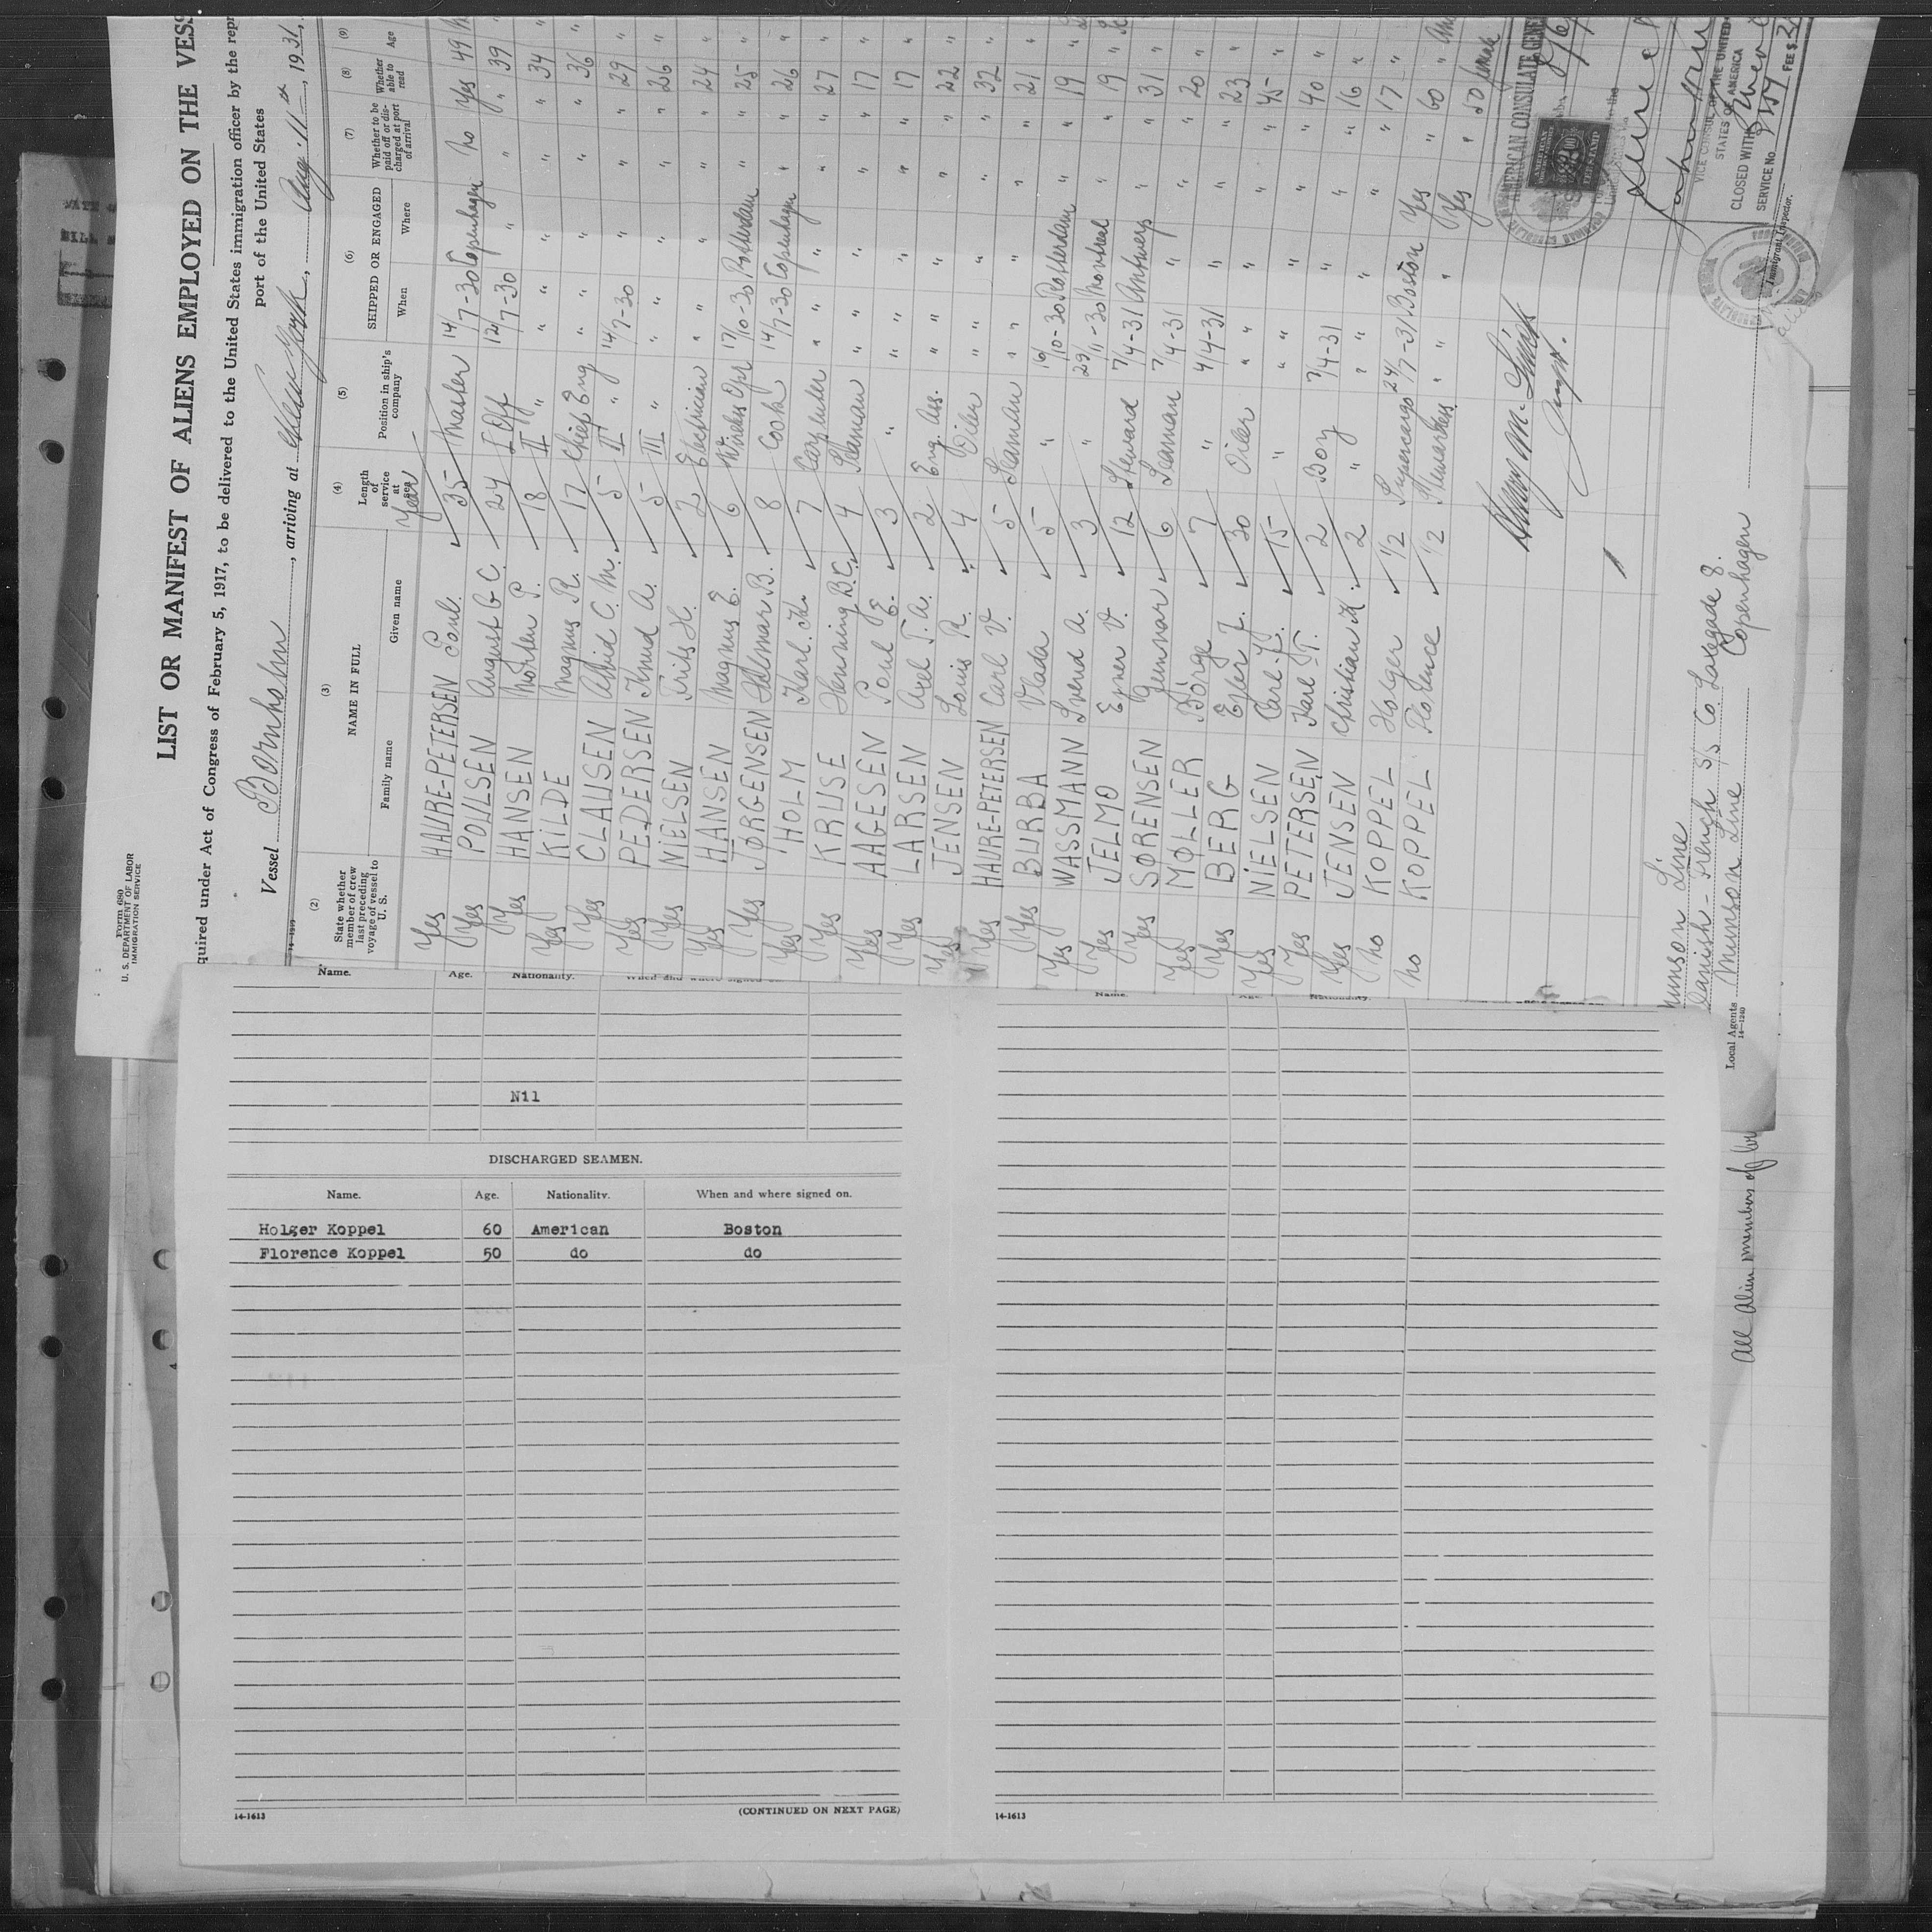 Form 680
U. S. DEPARTMENT OF LABOR
IMMIGRATION SERVICE
LIST OR MANIFEST OF ALIENS EMPLOYED ON THE VESS
quired under Act of Congress of February 5, 1917, to be delivered to the United States immigration officer by the repr
port of the United States
Vessel Bornholm, arriving at New York, Aug. 11th, 1931,
(2) (3) (4) (5) (6) (7) (8) (9)
State whether member of crew last preceding voyage of vessel to U. S.
NAME IN FULL
Family name Given name
Length of service at sea
Years
Position in ship's company
SHIPPED OR ENGAGED
When Where
Whether to be paid off or discharged at port of arrival
Whether able to read
Age
Yes HAURE-PETERSEN Poul. 35 Master 14/7-30 Copenhagen No Yes 49
Yes POULSEN August G C. 24 I Off 12/7-30 " " " 39 "
Yes HANSEN Morten P. 18 II " " " " " 34 "
Yes KILDE Magnus R. 17 Chief Eng " " " " 36 "
Yes CLAUSEN Arvid C. M. 5 II " 14/7-30 " " " 29 "
Yes PEDERSEN Knud A. 5 III " " " " " 26 "
Yes NIELSEN Frits H. 2 Electrician " " " " 24 "
Yes HANSEN Magnus E. 6 Wireless Opr 17/10-30 Rotterdam " " 25 "
Yes JØRGENSEN Hjalmar B. 8 Cook 14/7-30 Copenhagen " " 26 "
Yes HOLM Karl. K. 7 Carpenter " " " " 27 "
Yes KRUSE Henning B.C. 4 Seaman " " " " 17 "
Yes AAGESEN Poul E. 3 " " " " " 17 "
Yes LARSEN Axel T. A. 2 Eng. Ass. " " " " 22 "
Yes JENSEN Louis R. 4 Oiler " " " " 32 "
Yes HAURE-PETERSEN Carl V. 5 Seaman " " " " 21 "
Yes BURBA Vlada 5 " 16/10-30 Rotterdam " " 19 "
Yes WASSMANN Svend A. 3 " 29/11-30 Montreal " " 19 "
Yes JELMO Ejner V. 12 Steward 7/4-31 Antwerp " " 31 "
Yes SØRENSEN Gunnar 6 Seaman 7/4-31 " " " 20 "
Yes MØLLER Børge 7 " 4/4-31 " " " 23 "
Yes BERG Ejler J. 30 Oiler " " " " 45 "
Yes NIELSEN Carl J. 15 " " " " " 40 "
Yes PETERSEN Karl T. 2 Boy 7/4-31 " " " 16 "
Yes JENSEN Christian K. 2 " " " " " 17 "
No KOPPEL Holger 1/2 Supercargo 24/7-31 Boston Yes " 60 "
No KOPPEL Florence 1/2 Stewardess " " Yes " 50 female
Henry M.
Insp.
AMERICAN CONSULATE GENE
AMERICAN
$2.00
FEE STAMP
VICE CONSUL OF THE UNITED
STATES OF AMERICA
CLOSED WITH
SERVICE NO
FEE $
Immigrant Inspector.
Munson Line
Danish-French S/S Co Losegade 8.
Copenhagen
Local Agents Munson Line
14-1240
All alien members of
Name. Age. Nationality. When and where signed on.
Nil
DISCHARGED SEAMEN.
Name. Age. Nationality. When and where signed on.
Holger Koppel 60 American Boston
Florence Koppel 50 do do
14-1613 (CONTINUED ON NEXT PAGE)
Name. Age. Nationality.
14-1613